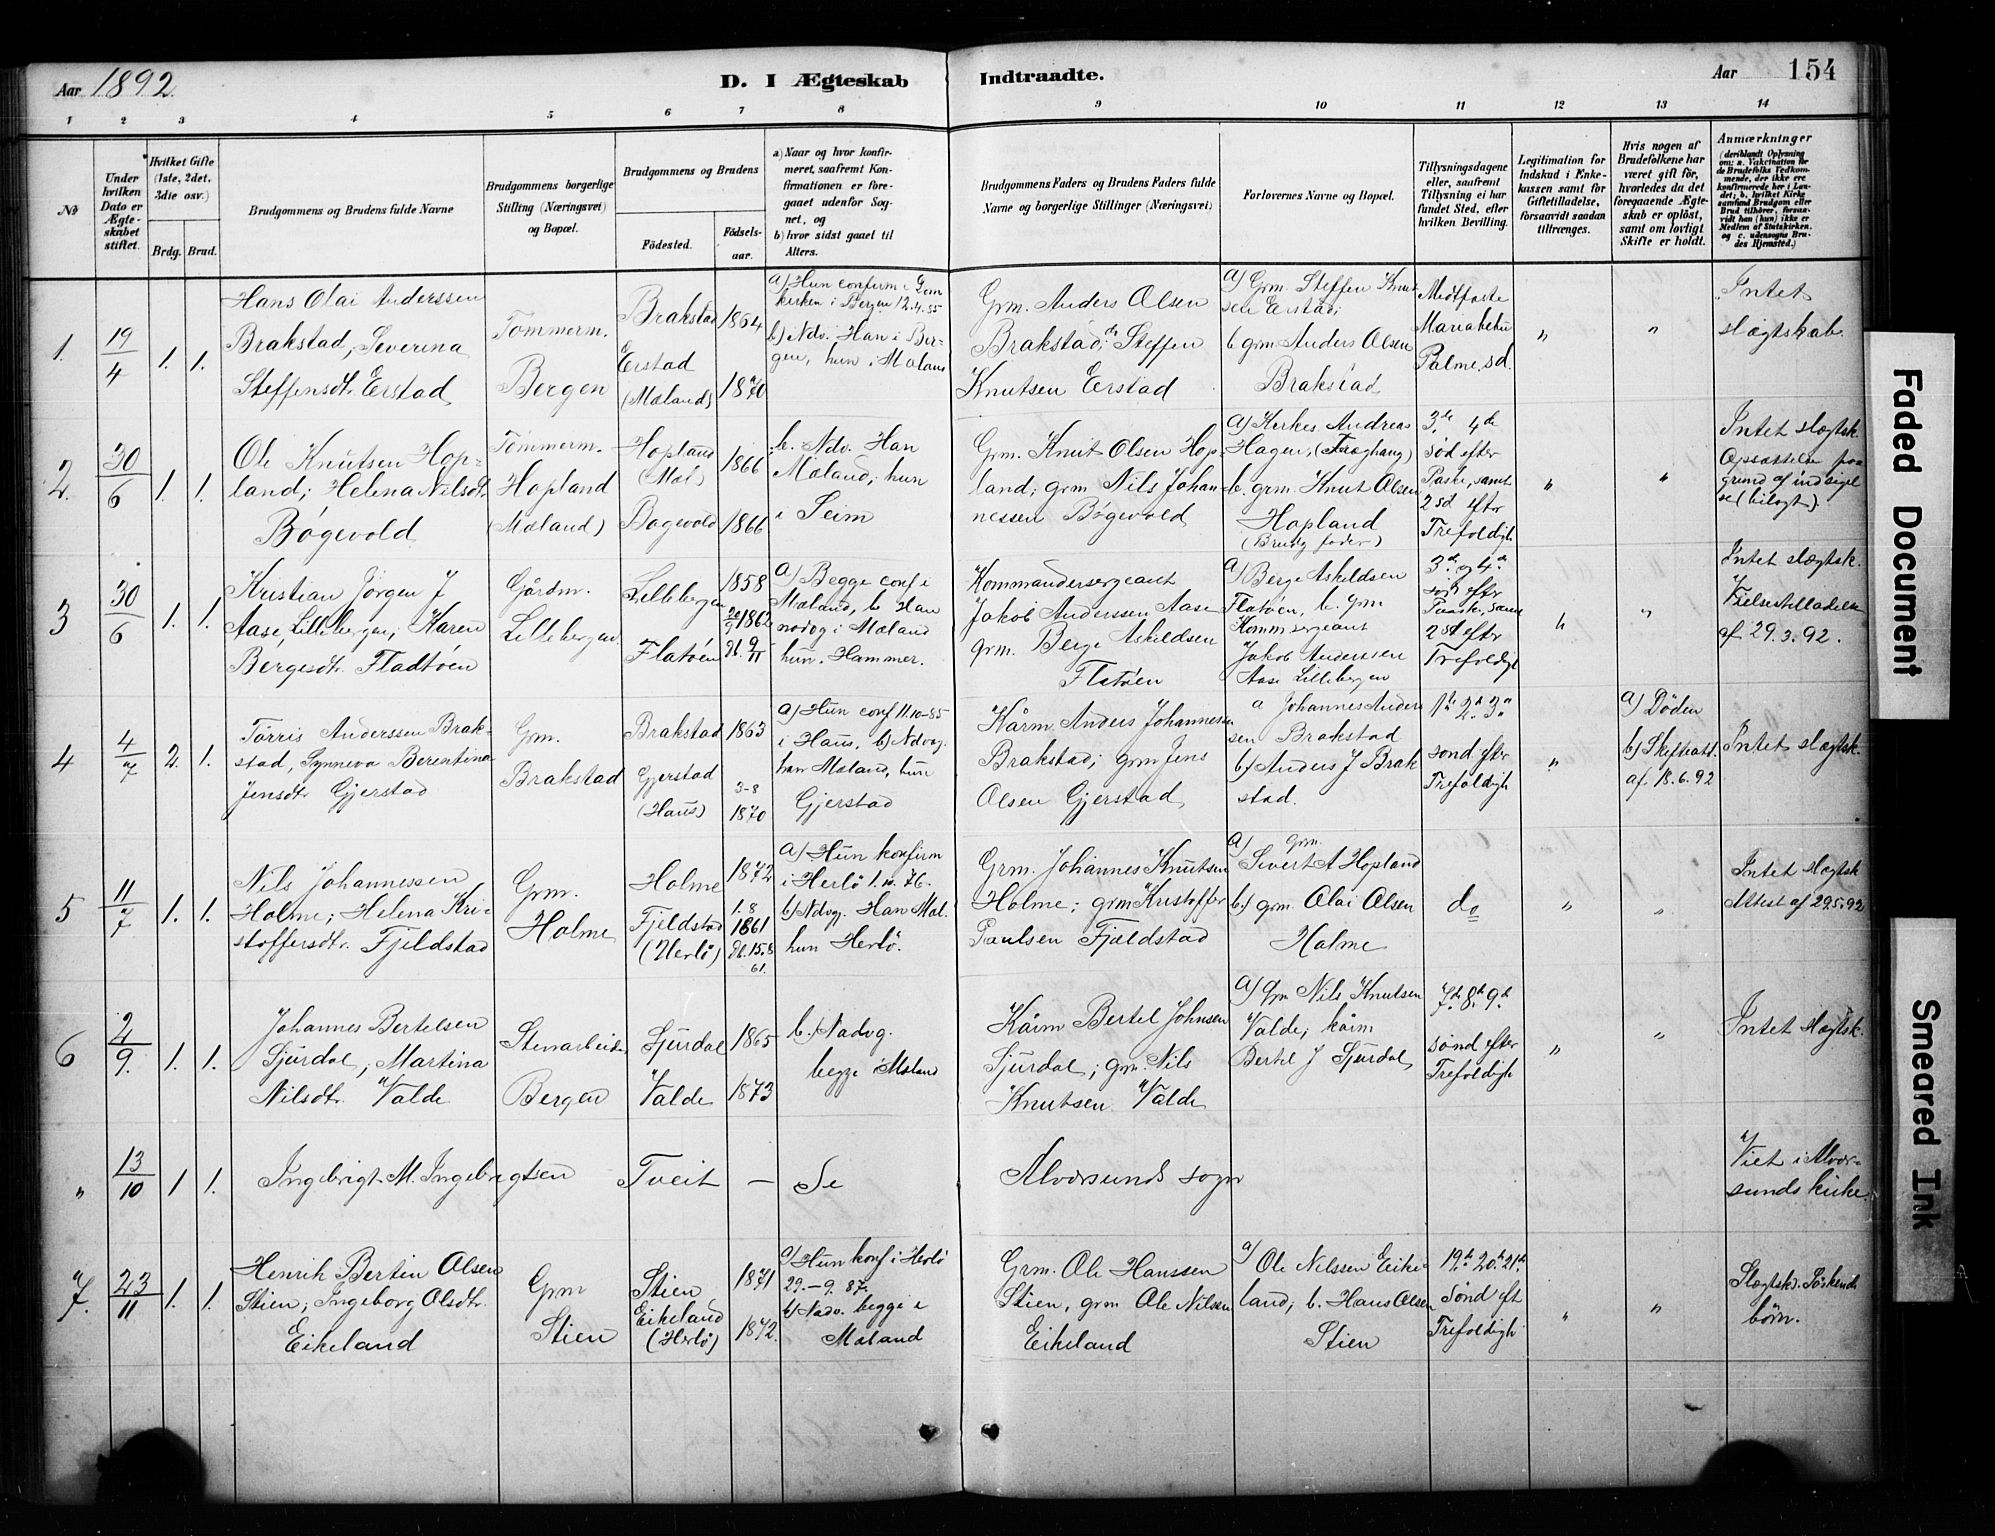 Aar 1892
D. I Ægteskab Indtraadte.
Aar 154
1 2 3 4 5 6 7 8 9 10 11 12 13 14
№
Under hvilken Dato er Ægteskabet stiftet.
Hvilket Gifte (1ste, 2det, 3die osv.)
Brdg. Brud.
Brudgommens og Brudens fulde Navne
Brudgommens borgerlige Stilling (Næringsvei) og Bopæl.
Brudgommens og Brudens
Födested. Födselsaar.
a) Naar og hvor konfirmeret, saafremt Konfirmationen er foregaaet udenfor Sognet, og
b) hvor sidst gaaet til Alters.
Brudgommens Faders og Brudens Faders fulde Navne og borgerlige Stillinger (Næringsvei)
Forlovernes Navne og Bopæl.
Tillysningsdagene eller, saafremt Tillysning ei har fundet Sted, efter hvilken Bevilling.
Legitimation for Indskud i Enkekassen samt for Giftetilladelse, forsaavidt saadan tiltrænges.
Hvis nogen af Brudefolkene har været gift før, hvorledes da det foregaaende Ægteskab er oplöst, samt om lovligt Skifte er holdt.
Anmærkninger (deriblandt Oplysning om: a. Vakcination for de Brudefolks Vedkommende, der ikke ere konfirmerede her i Landet; b. hvilket Kirkesamfund Brudgom eller Brud tilhörer, forsaavidt han (hun) ikke er Medlem af Statskirken, og c. udensogns Brudes Hjemsted.)
1. 19/4 1. 1.
Hans Olai Anderssen
Brakstad, Severina
Steffensdtr Eerstad
Tömmerm.
Bergen
Brakstad
Eerstad
(Mæland)
1864
1870
a) Hun confirm i Dom
kirken i Bergen 12.4.85
b) Ndv. Han i Ber-
gen, hun i Mæland
Grm. Anders Olsen
Brakstad; Steffen
Knutsen Eerstad
a) Grm. Steffen Knut
sen Eerstad;
b grm Anders Olsen
Brakstad
Midtfaste
Mariabebu
Palme sd.
"
"
Intet
slægtskab.
2. 30/6 1. 1.
Ole Knutsen Hop-
land; Helena Nilsdtr
Bøgevold
Tömmerm.
Hopland
(Mæland)
Hopland
(Mæl)
Bøgevold
1866
1866
b. Ndv. Han
Mæland, hun
i Seim
Grm. Knut Olsen Hop-
land; grm Nils Johan-
nessen Bøgevold
a) Kirkes. Andreas
Hagen, (Fræghaug)
b. grm. Knut Olsen
Hopland
(Brudg fader)
3de 4de
sød efter
Paske, samt
2 sd efter
Trefoldigh
"
"
Intet slægtsk.
Opsættelse paa
grund af indsigel
se (bilagt).
3 30/6 1. 1.
Kristian Jörgen J
Aase, Lillebergen; Karen
Bergesdtr Fladtøen
Gårdm.
Lillebergen
Lillebergen
Flatöen
1858
1862
a) Begge conf i
Mæland, b. Han
nadvg i Mæland
hun. Hammer.
Kommandersergeant
Jakob Anderssen Aase
grm. Berge Askildsen
Flatöen
a) Berge Askildsen
Flatöen, b. grm
Komm sergeant
Jakob Anderssen
Aase Lillebergen
3de og 4de
efter
Paask, samt
2 sd efter
Trefoldigh
"
"
Intet slægtsk.
Vielsestilladelse
af 29.3.92.
4 4/7 2. 1.
Tørris Anderssen Brak-
stad, Synneva Berentina
Jensdtr Gjerstad
Grm.
Brakstad
Brakstad
Gjerstad
(Haus)
1863
3-8
1870
a) Hun conf 11.10-85
i Haus, b) Ndvg.
han Mæland, hun
Gjerstad
Kårm. Anders Johannesen
Brakstad; grm Jens
Olsen Gjerstad
a Johannes Anders
sen Brakstad
b) Anders J Brak
stad.
1ste 2de 3de
sønd. efter
Trefoldigh
"
a) Döden
b) Skifteatt.
af 18.6.92
Intet slægtsk.
5 11/7 1. 1.
Nils Johannessen
Holme; Helena Kri-
stoffersdtr. Fjeldstad
Grm.
Holme
Holme
Fjeldstad
(Herlö)
1872
1.8
1861
db. 15.8
61.
a) Hun konfirm
i Herlö 1.10.76.
b) Ndvg. Han Mæl.
hun Herlö.
Grm. Johannes Knutsen
Holme; grm Kristoffer
Paulsen Fjeldstad
a) Grm.
Sivert A Hopland
b) grm. Olai Olsen
Holme
do
"
"
Intet slægtsk
Attest af 29.5.92
6 2/9. 1. 1.
Johannes Bertelsen
Sjurdal, Martina
Nilsdtr. Valde
Stenarbeid.
Bergen
Sjurdal
Valde
1865
1873
b.) Nadvg.
begge i Mæland
Kårm Bertel Johnsen
Sjurdal; grm. Nils
Knutsen Valde
a) Grm Nils Knutsen
Valde; kårm
Bertel J Sjurdal
7de 8de 9de
sønd efter
Trefoldigh
"
"
Intet slægtsk.
" 13/10 1 1.
Ingebrigt M. Ingebrigtsen Tveit — Se Alversunds sogn
Viet i Alver-
sunds kirke.
7. 23/11 1. 1.
Henrik Bertin Olsen
Stien; Ingeborg Olsdtr.
Eikeland
Grm
Stien
Stien
Eikeland
(Herlö)
1871
1872.
a) Hun konf i Herlö
29.-9.87.
b) Nadv. begge i
Mæland
Grm. Ole Hanssen
Stien, grm Ole Nilsen
Eikeland
a) Ole Nilssen Eike-
land, b. Hans Olsen
Stien
19de 20de 21de
Sönd eft
Trefoldigh
"
"
Slægtsk. Søskende
börn.
Faded Document
Smeared Ink